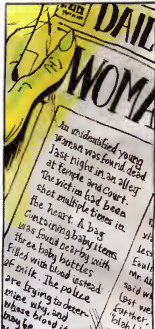 DAIL
WOMA
An unidentified young
woman was found dead
last night in an alley
at temple and Court.
The victim had been
shot multiple times in
the heart. A bag
containing baby items
was found nearby with
three baby bottles
filled with blood instead
of milk. The police
are trying to deter-
mine why, and
whose blood it
may be